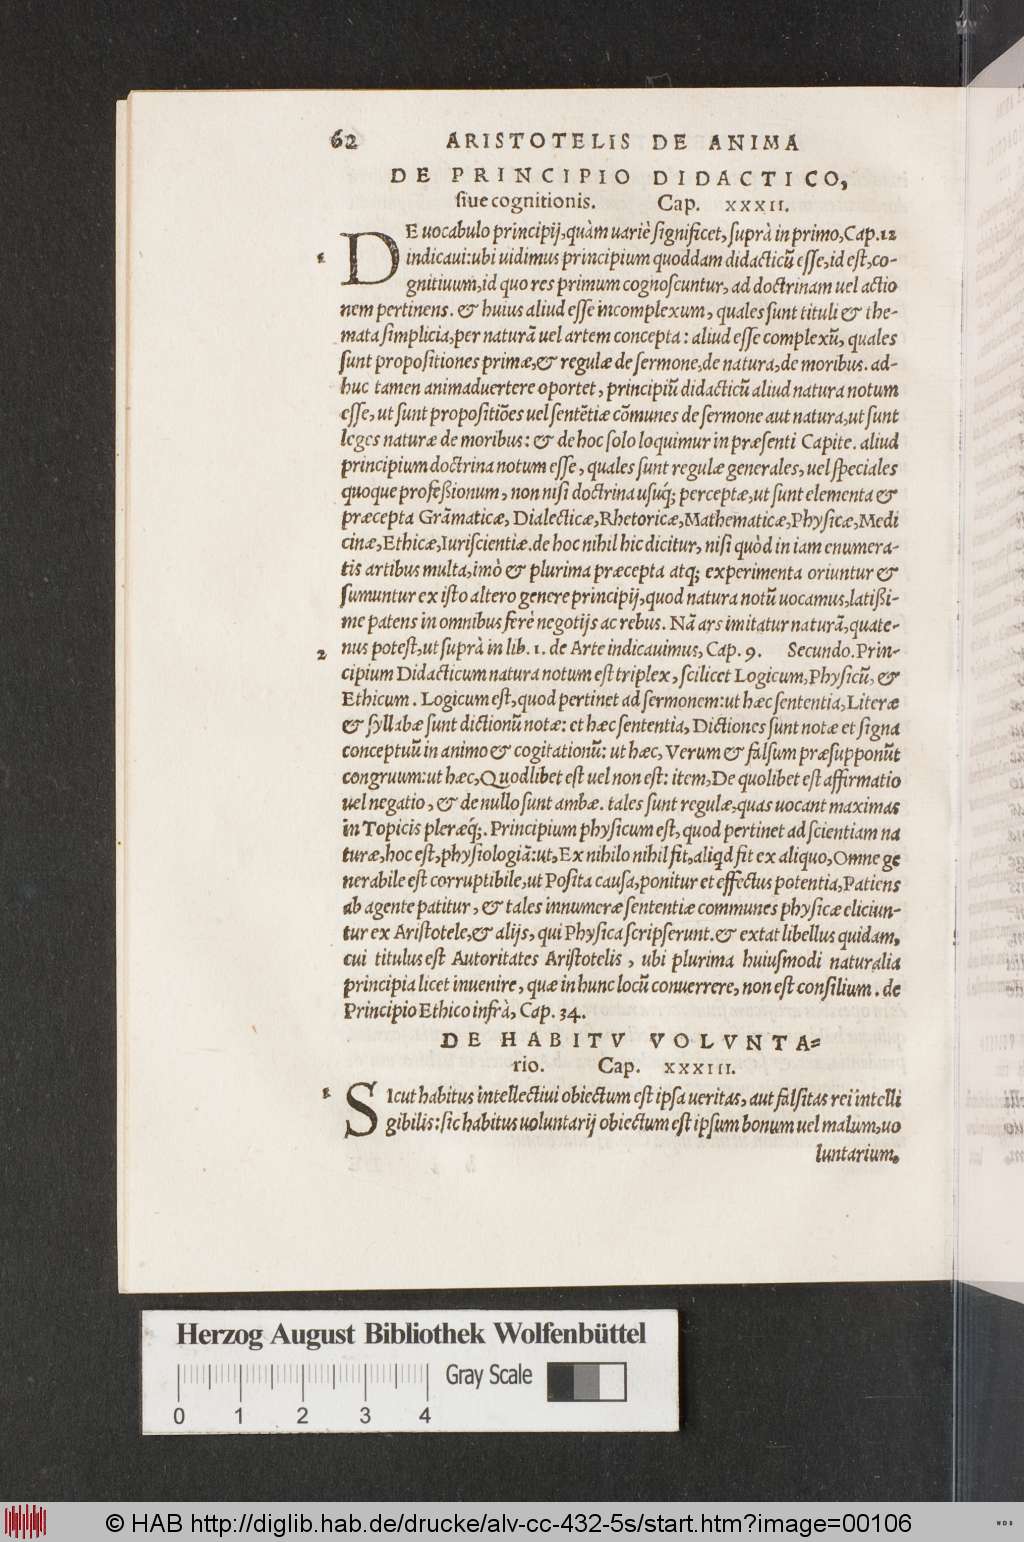 62 ARISTOTELIS DE ANIMA
DE PRINCIPIO DIDACTICO,
siue cognitionis. Cap. XXXII.
DE uocabulo principij, quàm uariè significet, suprà in primo, Cap. 12
1 indicaui: ubi uidimus principium quoddam didacticũ esse, id est, co-
gnitiuum, id quo res primum cognoscuntur, ad doctrinam uel actio
nem pertinens. & huius aliud esse incomplexum, quales sunt tituli & the-
mata simplicia, per naturã uel artem concepta: aliud esse complexũ, quales
sunt propositiones primæ, & regulæ de sermone, de natura, de moribus. ad-
huc tamen animaduertere oportet, principiũ didacticũ aliud natura notum
esse, ut sunt propositiões uel sentẽtiæ cõmunes de sermone aut natura, ut sunt
leges naturæ de moribus: & de hoc solo loquimur in præsenti Capite. aliud
principium doctrina notum esse, quales sunt regulæ generales, uel speciales
quoque profeßionum, non nisi doctrina usuq́; perceptæ, ut sunt elementa &
præcepta Grãmaticæ, Dialecticæ, Rhetoricæ, Mathematicæ, Physicæ, Medi
cinæ, Ethicæ, Iuriscientiæ. de hoc nihil hic dicitur, nisi quòd in iam enumera-
tis artibus multa, imò & plurima præcepta atq; experimenta oriuntur &
sumuntur ex isto altero genere principij, quod natura notũ uocamus, latißi-
me patens in omnibus ferè negotijs ac rebus. Nã ars imitatur naturã, quate-
2 nus potest, ut suprà in lib. 1. de Arte indicauimus, Cap. 9. Secundo. Prin-
cipium Didacticum natura notum est triplex, scilicet Logicum, Physicũ, &
Ethicum. Logicum est, quod pertinet ad sermonem: ut hæc sententia, Literæ
& syllabæ sunt dictionũ notæ: et hæc sententia, Dictiones sunt notæ et signa
conceptuũ in animo & cogitationũ: ut hæc, Verum & falsum præsupponũt
congruum: ut hæc, Quodlibet est uel non est: item, De quolibet est affirmatio
uel negatio, & de nullo sunt ambæ. tales sunt regulæ, quas uocant maximas
in Topicis pleræq́;. Principium physicum est, quod pertinet ad scientiam na
turæ, hoc est, physiologiã: ut, Ex nihilo nihil fit, aliqd fit ex aliquo, Omne ge
nerabile est corruptibile, ut Posita causa, ponitur et effectus potentia, Patiens
ab agente patitur, & tales innumeræ sententiæ communes physicæ eliciun-
tur ex Aristotele, & alijs, qui Physica scripserunt. & extat libellus quidam,
cui titulus est Autoritates Aristotelis, ubi plurima huiusmodi naturalia
principia licet inuenire, quæ in hunc locũ conuerrere, non est consilium. de
Principio Ethico infrà, Cap. 34.
DE HABITV VOLVNTA=
rio. Cap. XXXIII.
1 SIcut habitus intellectiui obiectum est ipsa ueritas, aut falsitas rei intelli
gibilis: sic habitus uoluntarij obiectum est ipsum bonum uel malum, uo
luntarium.
Herzog August Bibliothek Wolfenbüttel
Gray Scale
0 1 2 3 4
© HAB http://diglib.hab.de/drucke/alv-cc-432-5s/start.htm?image=00106